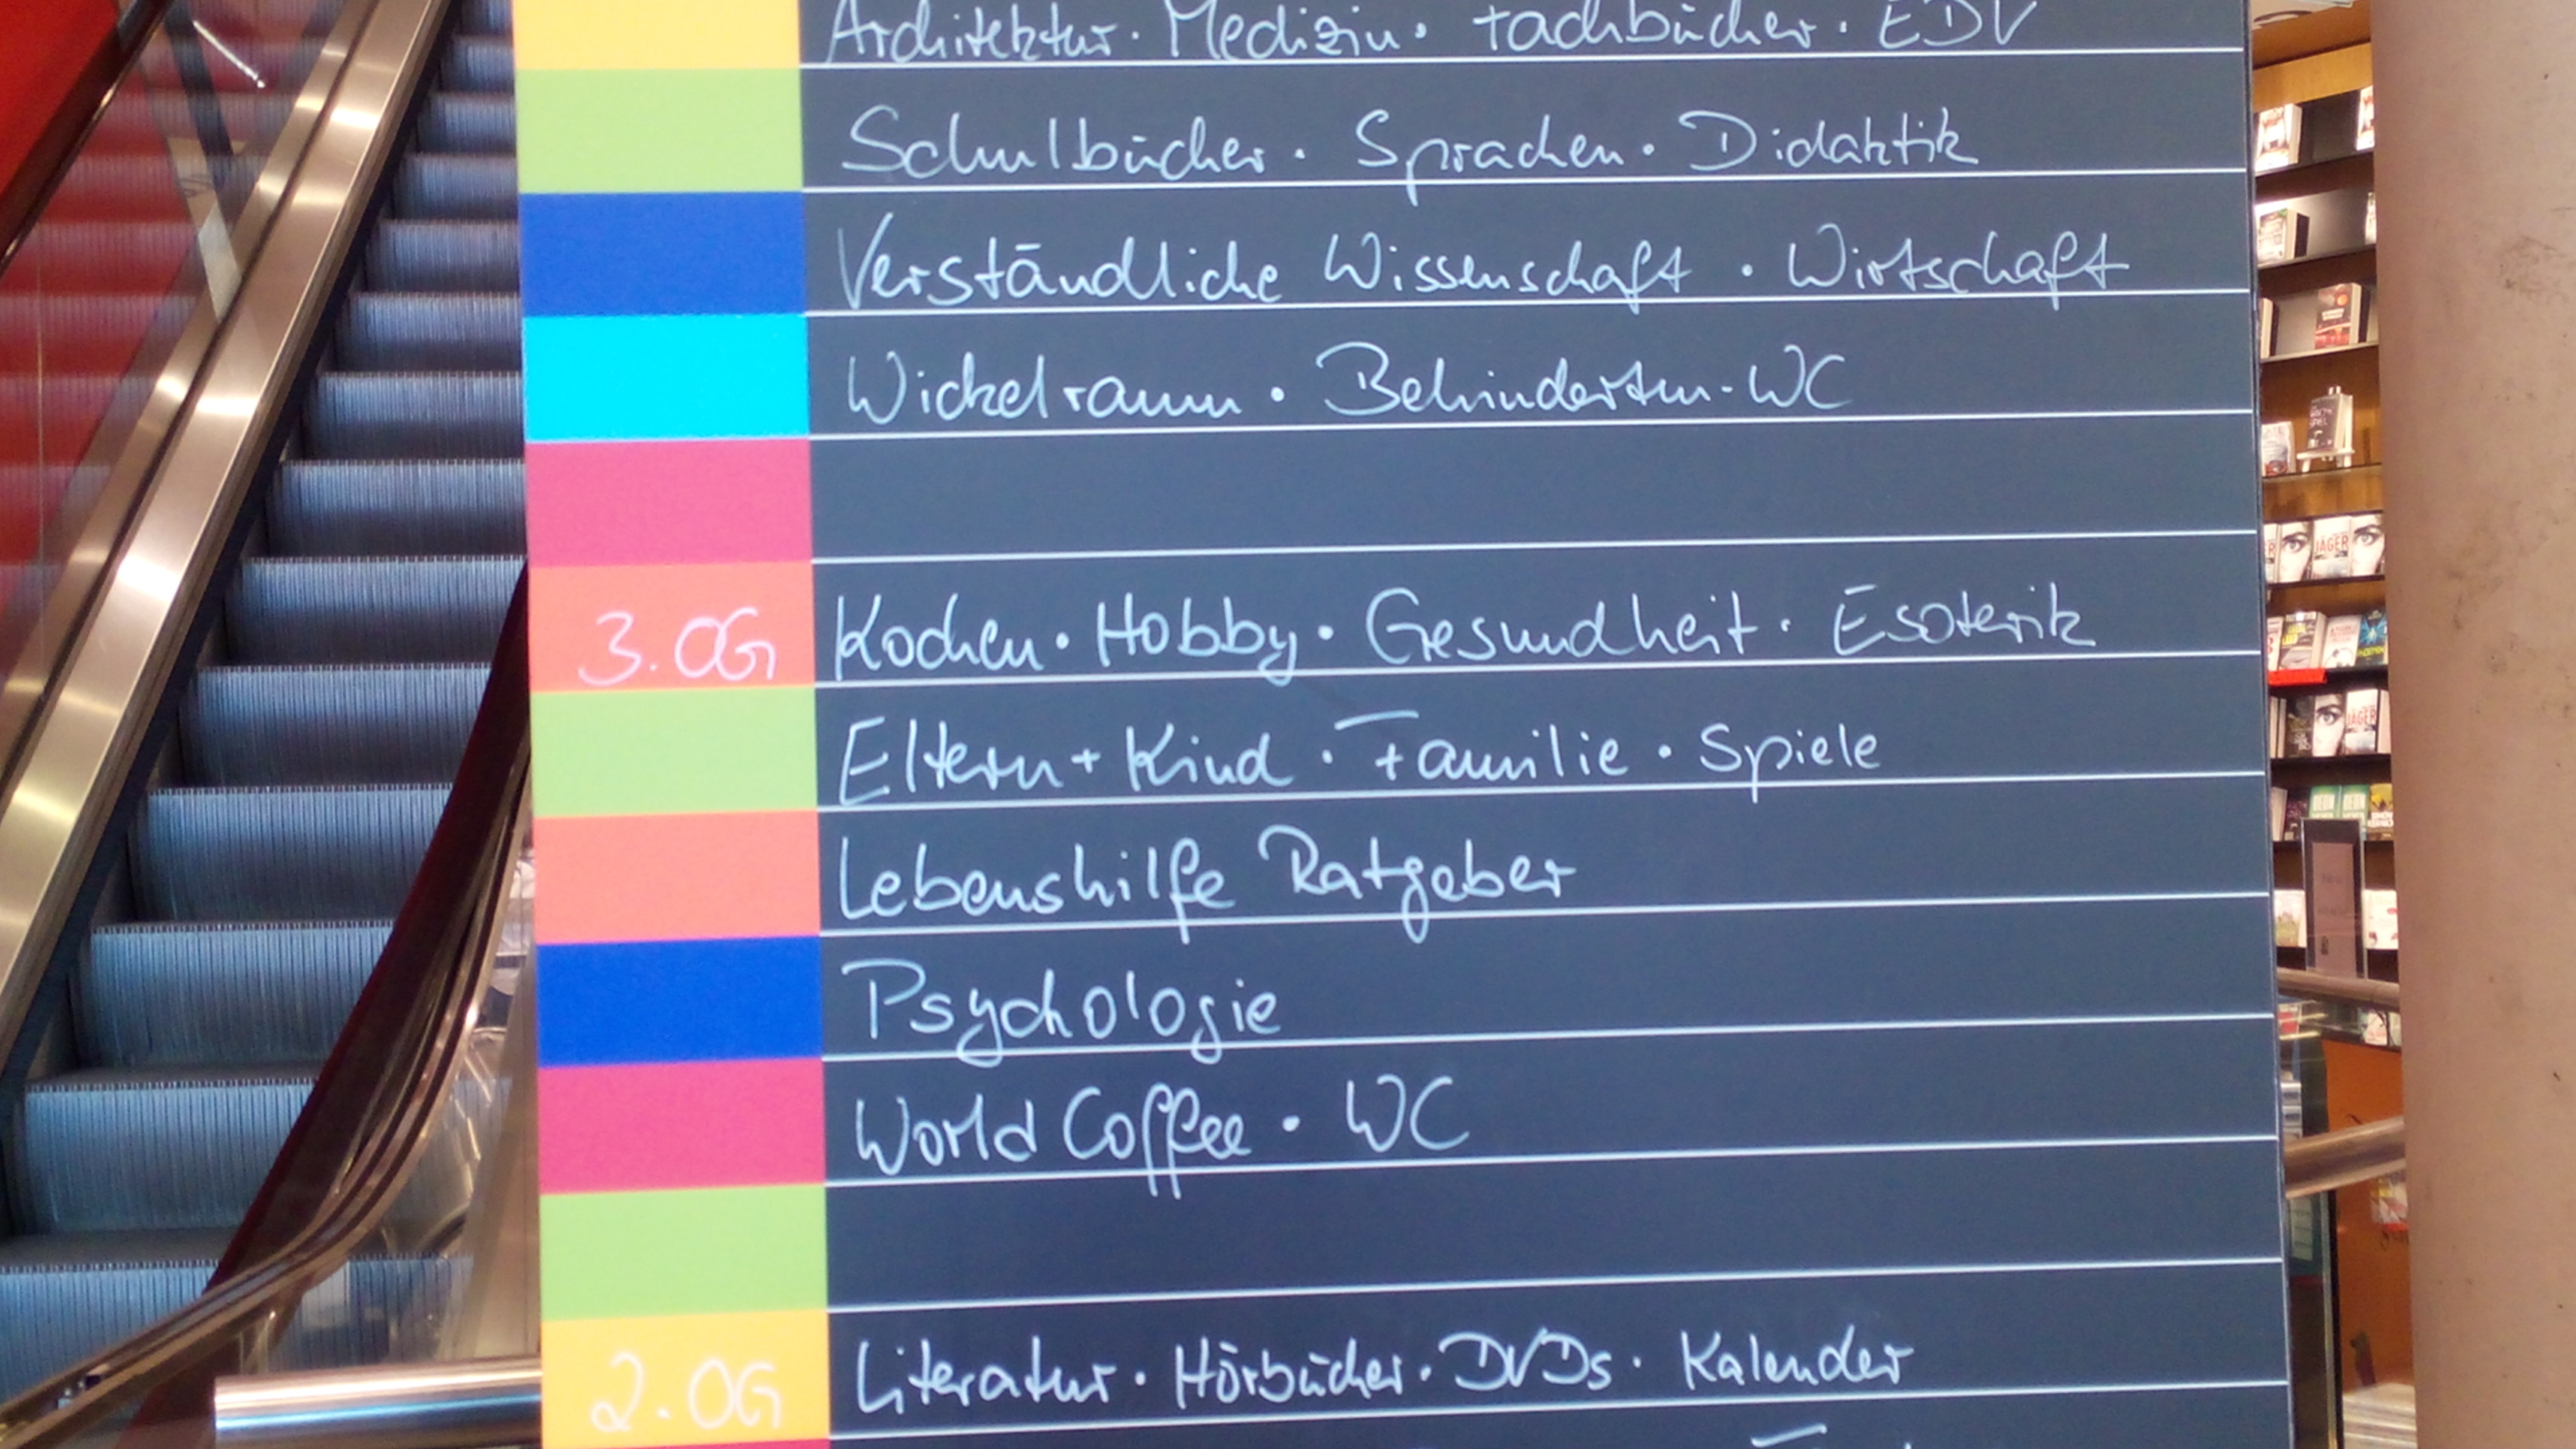 Architektur · Medizin · Fachbücher · EDV
Schulbücher · Sprachen · Didaktik
Verständliche Wissenschaft · Wirtschaft
Wickelraum · Behinderten-WC
3. OG Kochen · Hobby · Gesundheit · Esoterik
Eltern + Kind · Familie · Spiele
Lebenshilfe Ratgeber
Psychologie
World Coffee · WC
2. OG Literatur · Hörbücher · DVDs · Kalender
JÄGER
JÄGER